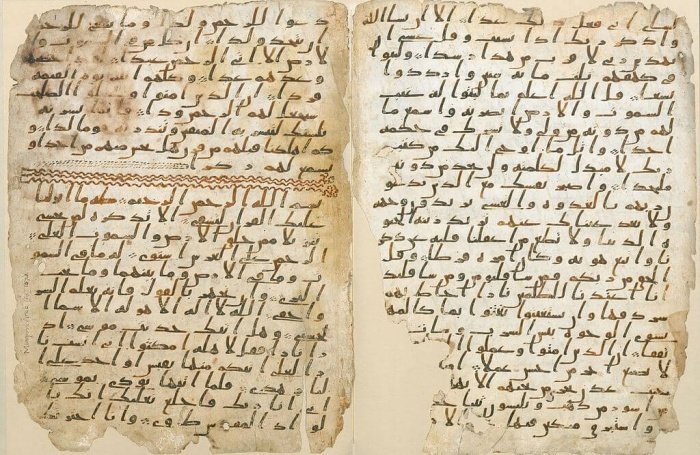 اني فاعل ذلك غدا الا ان يشا الله
واذكر ربك اذا نسيت وقل عسى ان
يهدين ربي لاقرب من هذا رشدا ولبثوا
في كهفهم ثلث مائة سنين وازدادوا
تسعا قل الله اعلم بما لبثوا له غيب
السموت والارض ابصر به واسمع ما
لهم من دونه من ولي ولا يشرك في حكمه
احدا واتل ما اوحي اليك من كتب
ربك لا مبدل لكلمته ولن تجد من دونه
ملتحدا واصبر نفسك مع الذين يدعون
ربهم بالغدوة والعشي يريدون وجهه
ولا تعد عيناك عنهم تريد زينة الحيو
ة الدنيا ولا تطع من اغفلنا قلبه عن ذكر
نا واتبع هويه وكان امره فرطا وقل
الحق من ربكم فمن شا فليومن ومن شا فليكفر
انا اعتدنا للظلمين نارا احاط بهم
سرادقها وان يستغيثوا يغثوا بما كالمهل
يشوي الوجوه بئس الشراب وسات
مرتفقا ان الذين امنوا وعملوا
لا نضيع اجر من احسن عملا
جنت عدن تجري من تحتهم الانهر
من اساور من ذهب ويلبسون ثيابا
واستبرق متكين فيها
دعوا للرحمن ولدا وما ينبغي للرحمن
ان يتخذ ولدا ان كل من في السموت و
الارض الا اتي الرحمن عبدا لقد احصهم
وعدهم عدا وكلهم اتيه يوم القيمة
فردا ان الذين امنوا وعملوا الصلحت
سيجعل لهم الرحمن ودا فانما يسرنه
بلسنك لتبشر به المتقين وتنذر به قوما لدا و
كم اهلكنا قبلهم من قرن هل تحس منهم من احد او
تسمع لهم ركزا
بسم الله الرحمن الرحيم طه ما انزلنا
عليك القران لتشقى الا تذكرة لمن يخشى
تنزيلا ممن خلق الارض والسموت العلى
الرحمن على العرش استوى له ما في السمو
ت وما في الارض وما بينهما وما تحت
الثرى وان تجهر بالقول فانه يعلم السر
واخفى الله لا اله الا هو له الاسما
الحسنى وهل اتيك حديث موسى اذ
را نارا فقال لاهله امكثوا اني انست نا
را لعلي اتيكم منها بقبس او اجد على ا
لنار هدى فلما اتيها نودي يموسى
اني انا ربك فاخلع نعليك انك با
لواد المقدس طوى وانا اخترتك